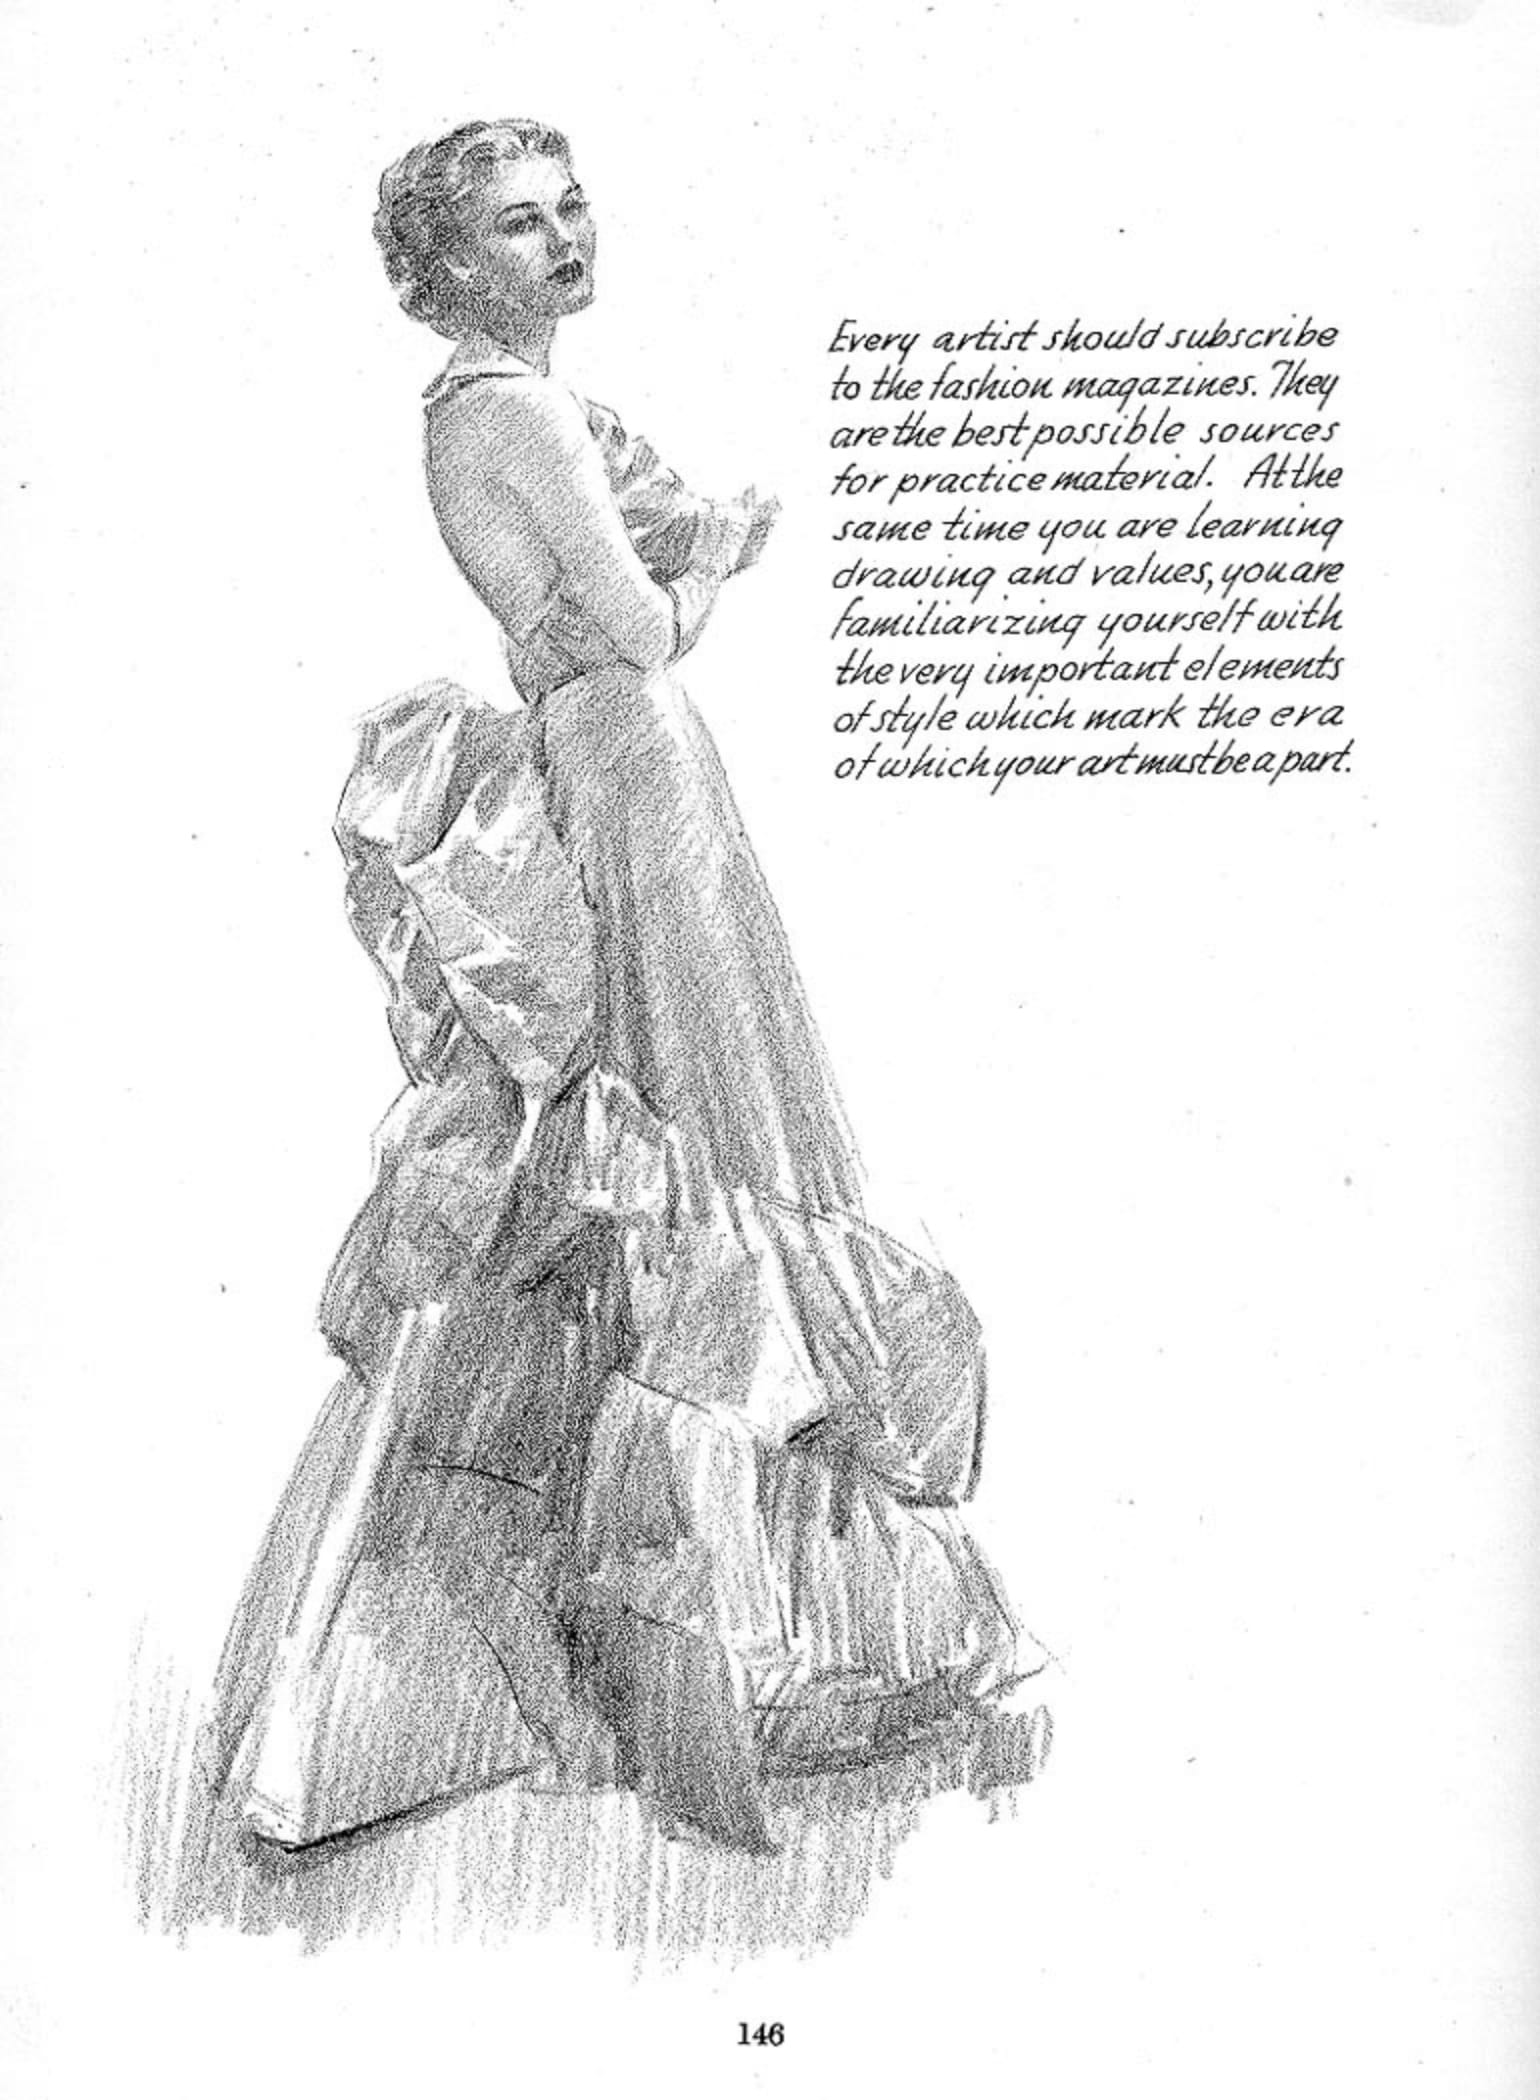 Every artist should subscribe
to the fashion magazines. They
are the best possible sources
for practice material. At the
same time you are learning
drawing and values, you are
familiarizing yourself with
the very important elements
of style which mark the era
of which your art must be a part.
146